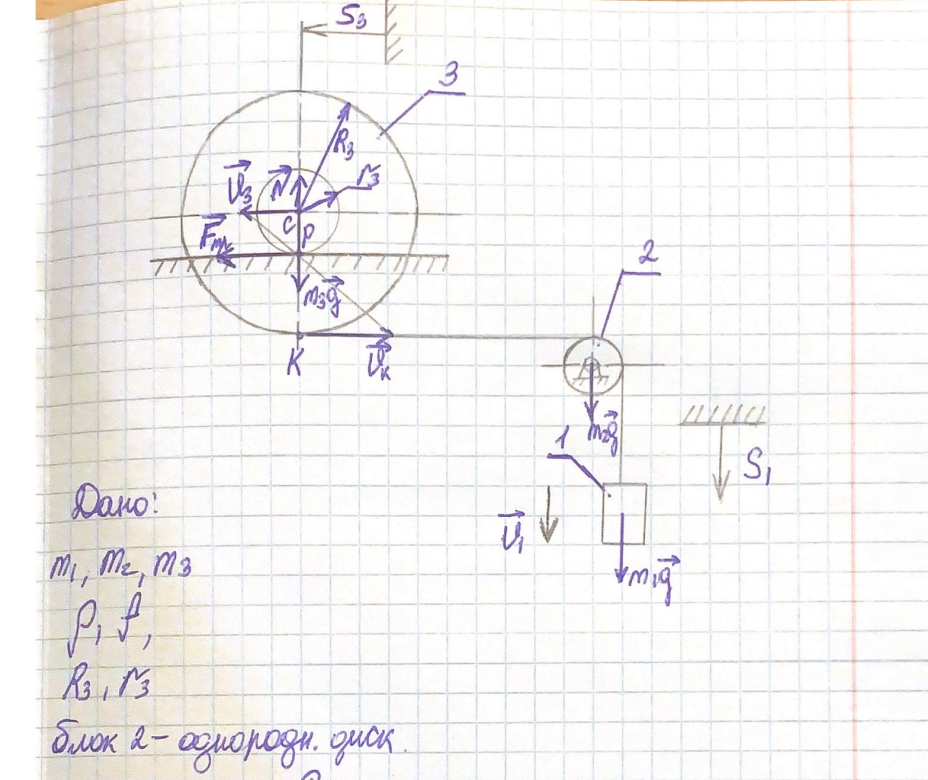 S₃
3
R₃
r₃
V⃗₃
N⃗
C
P
F⃗тр
m₃g⃗
K
V⃗к
2
m₂g⃗
1
S₁
V⃗₁
m₁g⃗
Дано:
m₁, m₂, m₃
ρ, f,
R₃, r₃
блок 2 - однородн. диск.